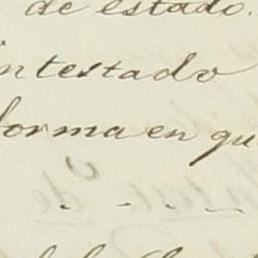 de estado.
intestado
forma en qu